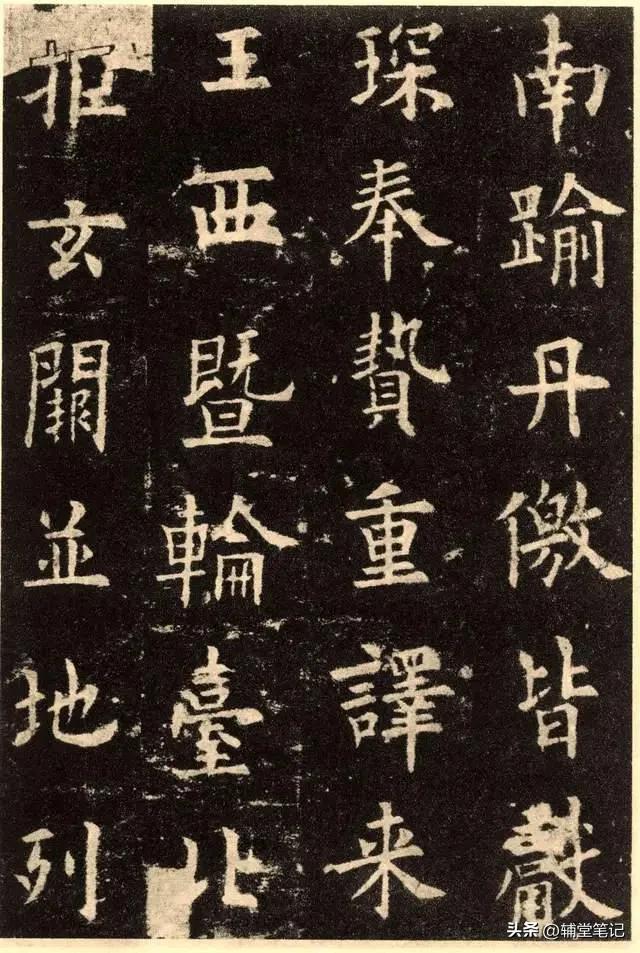 南踰丹儌皆獻
琛奉贄重譯来
王西暨輪臺北
拒玄闕並地列
头条 @辅堂笔记